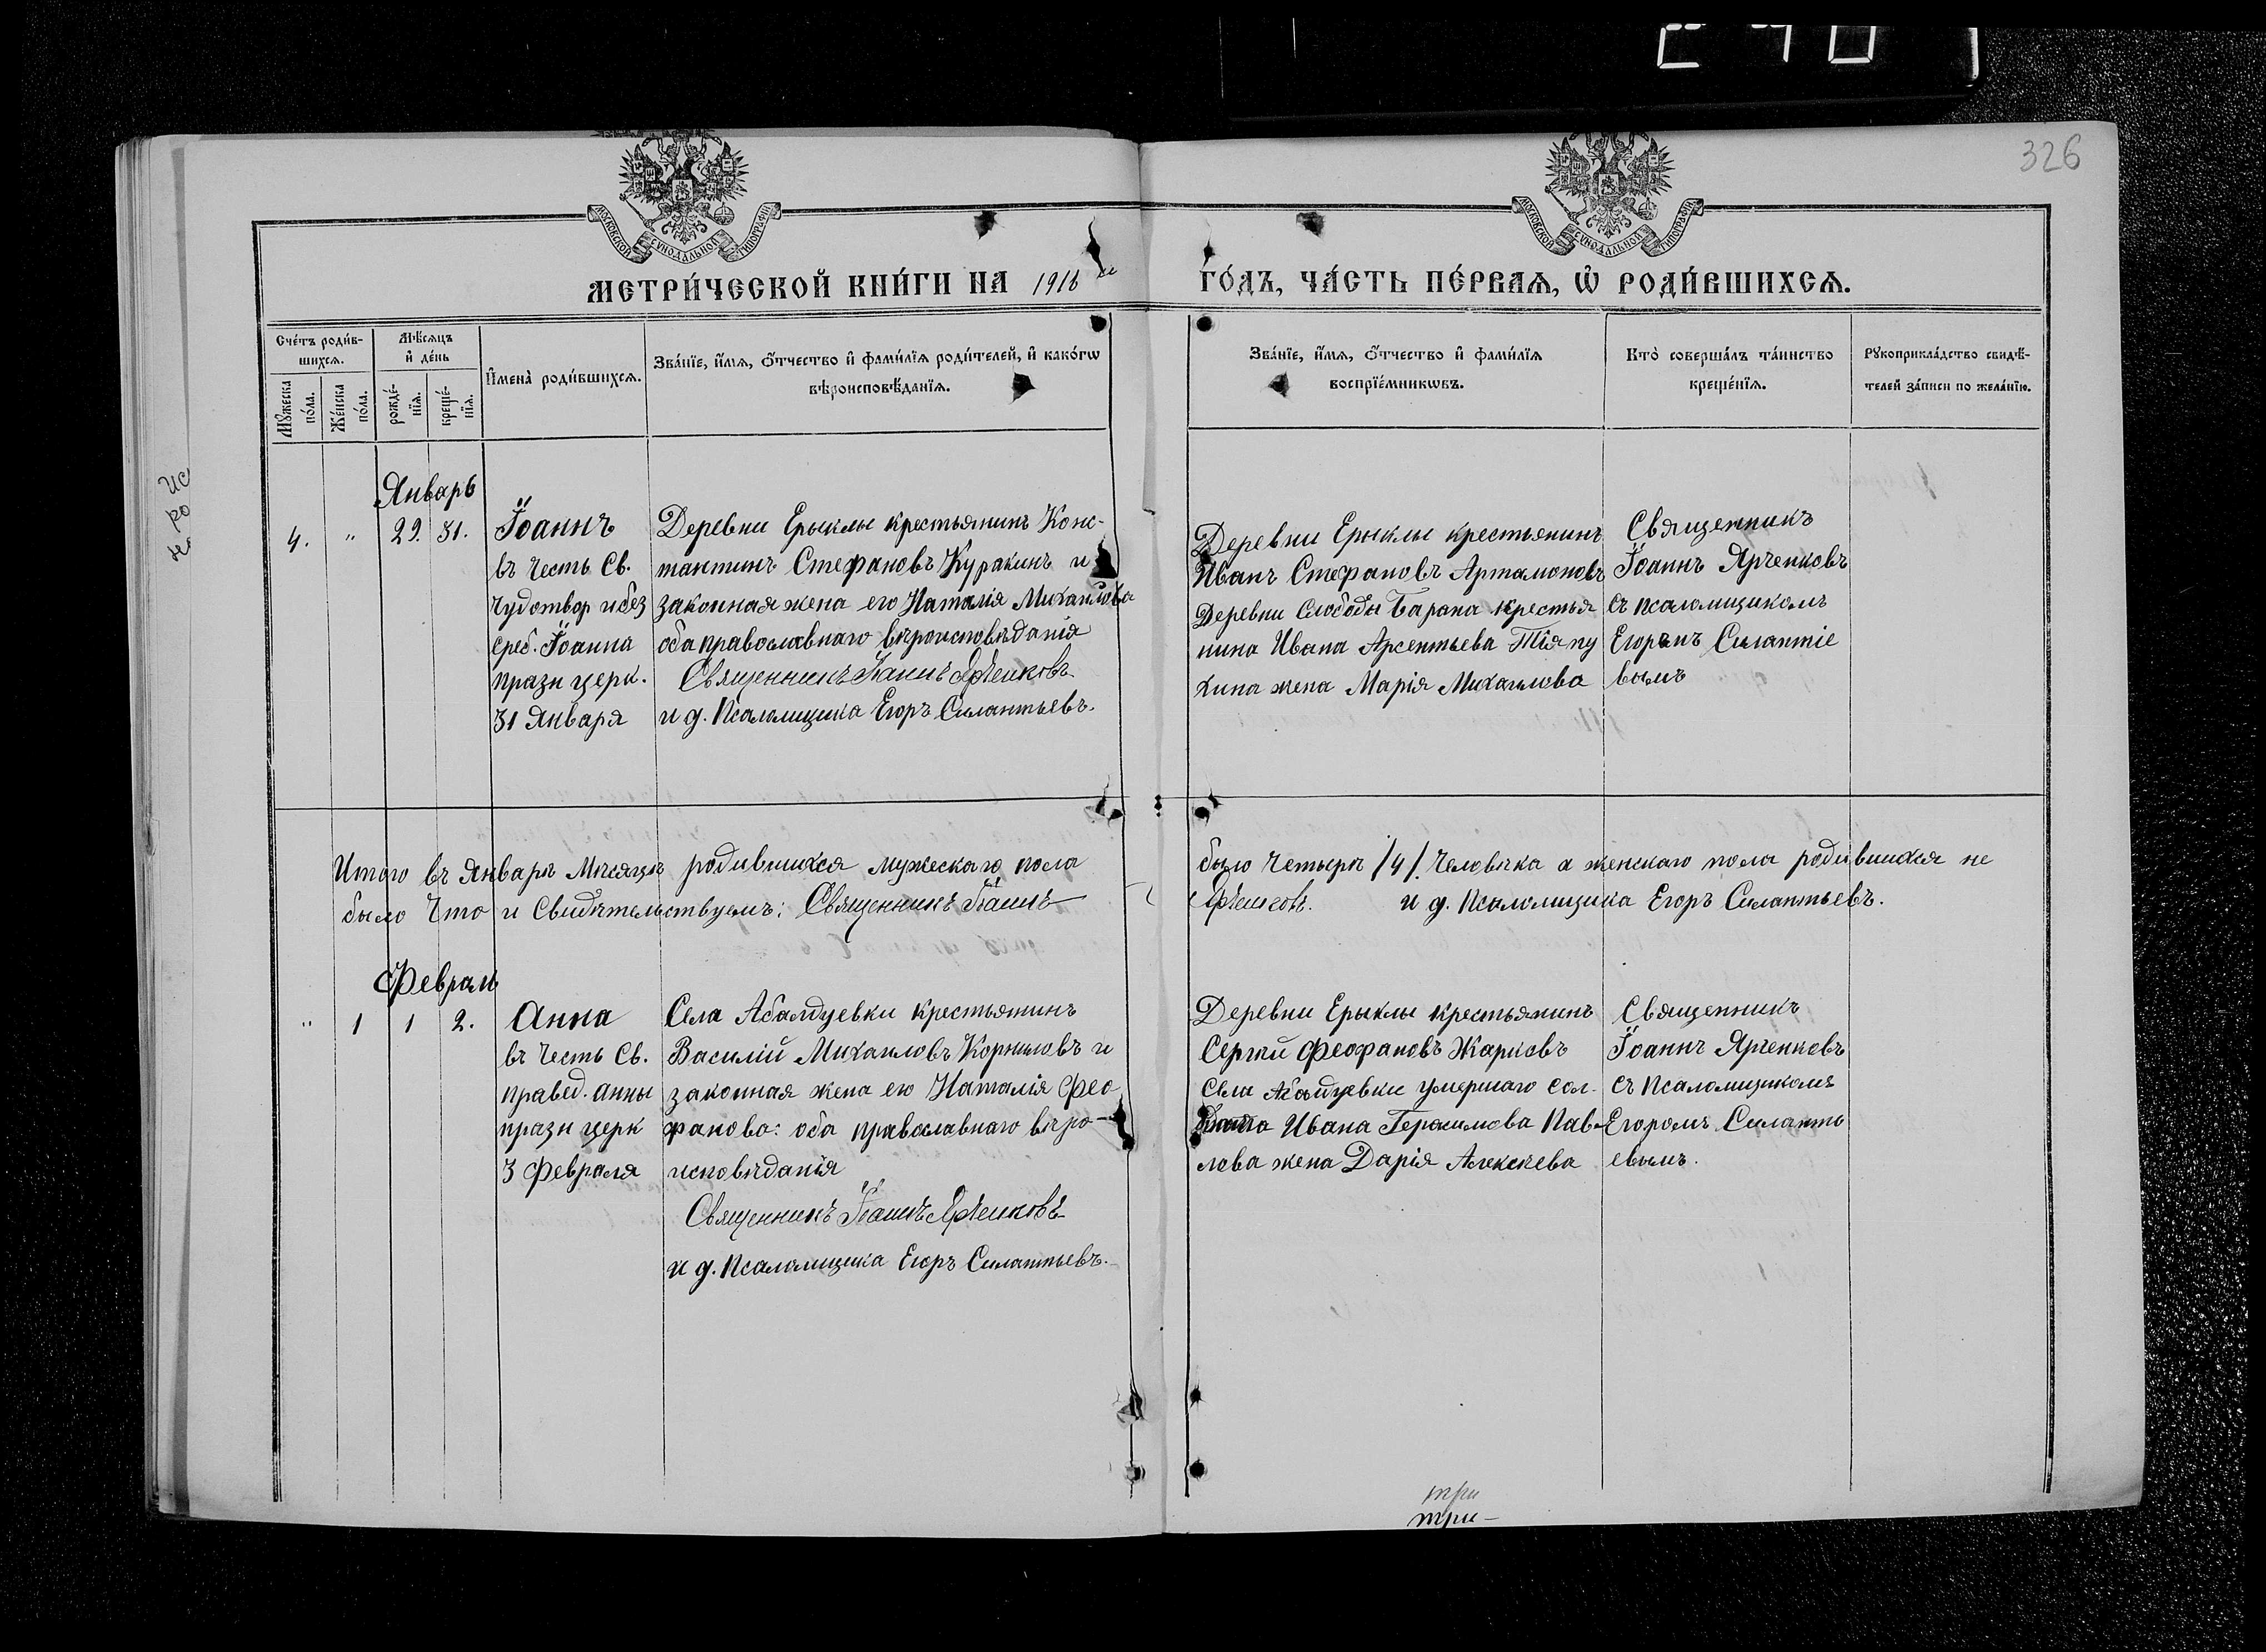 326
МОСКОВСКОЙ СУНОДАЛЬНОЙ ТИПОГРАФІИ
МОСКОВСКОЙ СУНОДАЛЬНОЙ ТИПОГРАФІИ
МЕТРИ́ЧЕСКОЙ КНИ́ГИ НА 1916 й ГО́ДЪ, ЧА́СТЬ ПЕ́РВАѦ, Ѡ҆ РОДИ́ВШИХСѦ.
Сче́тъ роди́в-
шихсѧ.
Мꙋ́жеска по́ла.
Же́нска по́ла.
Мѣ́сѧцъ
и҆ де́нь
рожде́-
нїѧ.
креще́-
нїѧ.
И҆мена̀ роди́вшихсѧ.
Зва́нїе, и҆́мѧ, ѻ҆́тчество и҆ фами́лїѧ роди́телей, и҆ како́гѡ
вѣроисповѣ́данїѧ.
Зва́нїе, и҆́мѧ, ѻ҆́тчество и҆ фами́лїѧ
воспрїе́мникѡвъ.
Кто̀ соверша́лъ та́инство
креще́нїѧ.
Рꙋкоприкла́дство свидѣ́-
телей за́писи по жела́нїю.
Январь
4. " 29. 31.
Іоаннъ
въ честь Св.
чудотвор и без
среб. Іоанна
празн церк.
31 Января
Деревни Ерыклы крестьянинъ Конс-
тантинъ Стефановъ Куракинъ и
законная жена его Наталія Михайлова
оба православнаго вѣроисповѣданія
Священникъ Іоаннъ Ярченковъ
и д. Псаломщика Егоръ Силантьевъ.
Деревни Ерыклы крестьянинъ
Иванъ Стефановъ Артамоновъ
Деревни Слободы Барана крестья
нина Ивана Арсентьева Тіяпу
хина жена Марія Михаилова
Священникъ
Іоаннъ Ярченковъ
съ псаломщикомъ
Силантіе
вымъ
Итого въ Январѣ Мѣсяцѣ родившихся мужескаго пола было четыре /4/. человѣка а женскаго пола родившихся не
было Что и Свидѣтельствуемъ: Священникъ Іоаннъ Ярченковъ. и д. Псаломщика Егоръ Силантьевъ.
Февраль
" 1 1 2.
Анна
въ честь Св.
правед. Анны
празн церк
3 Февраля
Села Абалдуевки крестьянинъ
Василій Михаиловъ Корниловъ и
законная жена его Наталія Фео
фанова: оба православнаго вѣро-
исповѣданія
Священникъ Іоаннъ Ярченковъ
и д. Псаломщика Егоръ Силантьевъ.
Деревни Ерыклы крестьянинъ
Сергѣй Феофановъ Жарковъ
Села Абалдуевки умершаго сол-
Ивана Герасимова Пав-
лова жена Дарія Алексѣева
Священникъ
Іоаннъ Ярченковъ
съ Псаломщикомъ
Егоромъ Силанть
евымъ.
три
три-